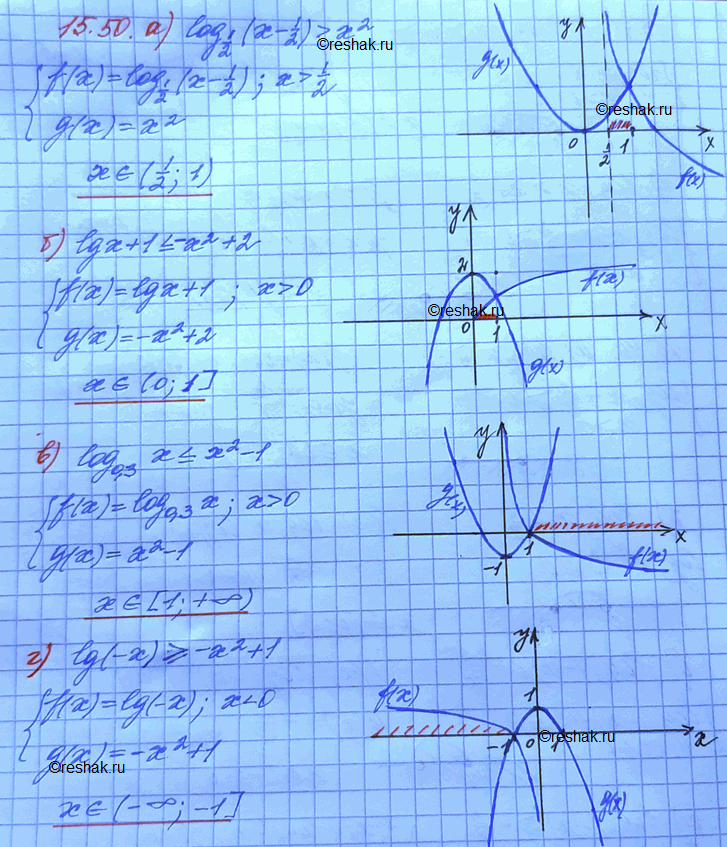 15.50. а) log_{1/2} (x - 1/2) > x²
©reshak.ru
{ f(x) = log_{1/2} (x - 1/2) ; x > 1/2
g(x) = x²
x ∈ (1/2 ; 1)
y
g(x)
©reshak.ru
0 1/2 1 x
f(x)
б) lg x + 1 ≤ -x² + 2
{ f(x) = lg x + 1 ; x > 0
g(x) = -x² + 2
x ∈ (0 ; 1]
y
2
f(x)
©reshak.ru
0 1 x
g(x)
в) log_{0,3} x ≤ x² - 1
{ f(x) = log_{0,3} x ; x > 0
g(x) = x² - 1
x ∈ [1 ; +∞)
y
g(x)
1 x
-1
f(x)
г) lg(-x) ≥ -x² + 1
{ f(x) = lg(-x) ; x < 0
g(x) = -x² + 1
©reshak.ru
x ∈ (-∞ ; -1]
y
f(x)
1
-1 0 1 x
©reshak.ru
g(x)